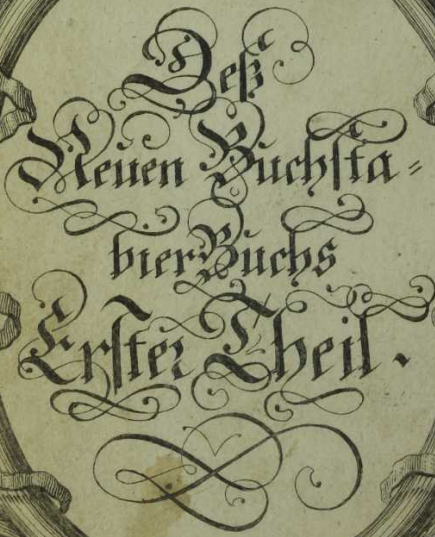 Deß
Neuen Buchsta=
bier Buchs
Erster Theil.